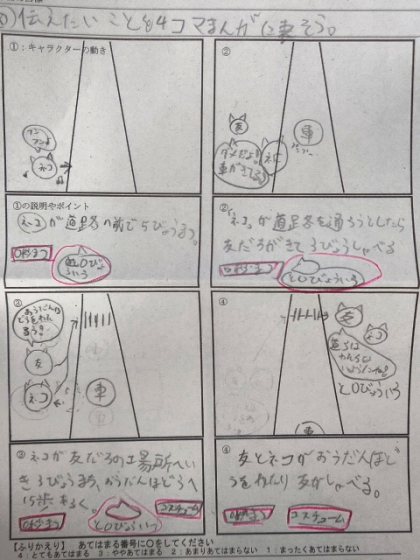 伝えたいことを4コマまんがに表そう。
①：キャラクターの動き
フン
フン♪
ネコ
②
友
ダメだよ!
車がきてるよ
ネコ
車
①の説明やポイント
ネコが道路の前で5びょうまつ。
0秒まつ
②ネコが道路を通ろうとしたら
友だちがきて3びょうしゃべる
0秒まつ
と0びょういろ
③
友
ネコ
車
④
友
ネコ
と0びょういろ
③ネコが友だちの場所へい
き3びょうまち、おうだんほどうへ
15歩あるく。
0秒まつ
と0びょういろ
コスチューム
④
友とネコがおうだんほどう
をわたり友がしゃべる。
0秒まつ
コスチューム
【ふりかえり】 あてはまる番号に○をしてください
4：とてもあてはまる 3：ややあてはまる 2：あまりあてはまらない 1：まったくあてはまらない